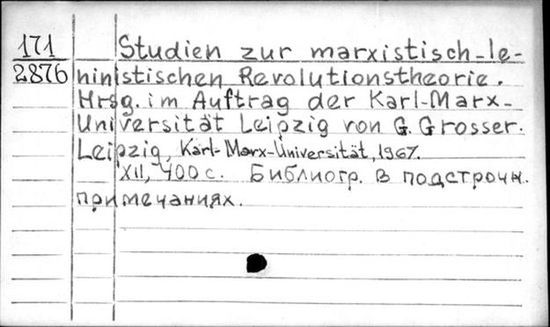 171
2876
Studien zur marxistisch-le-
ninistischen Revolutionstheorie.
Hrsg. im Auftrag der Karl-Marx-
Universität Leipzig von G. Grosser.
Leipzig, Karl-Marx-Universität, 1967.
XII, 400 с. Библиогр. в подстрочн.
примечаниях.